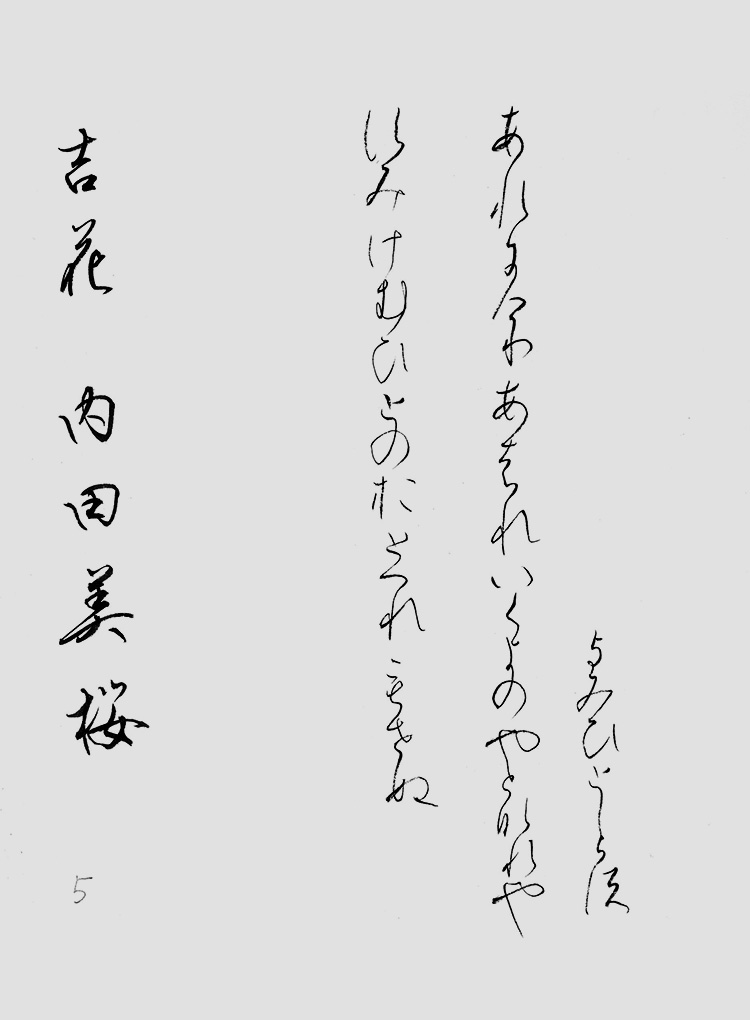 よみひとしらす
あれにけりあはれいくよのやとなれや
すみけむひとのおとつれもせぬ
吉花 内田美桜
5